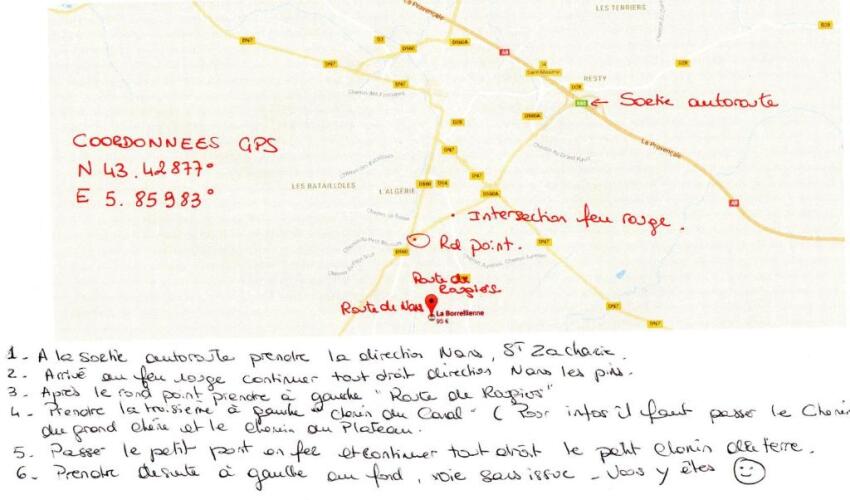 La Provençale
LES TERRIERS
DN7
D3
D560
D560A
A8
D28
DN7
34
Saint-Maximin
RESTY
D28
D28
DN7
Chemin des Fontaines
← Sortie autoroute
D28
D560A
La Provençale
COORDONNEES GPS
N 43.42877°
E 5.85983°
DN7
Chemin du Grand Pavé
LES BATAILLOLES
L'ALGÉRIE
D560
D14
DN7
D560A
A8
. Intersection feu rouge.
Rd point.
D560
DN7
Route de Rapios
Route de Nans
La Borrellienne
95 €
DN7
DN7
1 - A la sortie autoroute prendre la direction Nans, ST Zacharie.
2 - Arrivé au feu rouge continuer tout droit direction Nans les pins.
3 - Après le rond point prendre à gauche "Route de Rapios"
4 - Prendre la troisième à gauche "chemin du Caval" (Pour infos il faut passer le Chemin
du grand chêne et le chemin du Plateau.
5 - Passer le petit pont en fer et continuer tout droit le petit chemin de terre.
6 - Prendre de suite à gauche au fond, voie sans issue - Vous y êtes